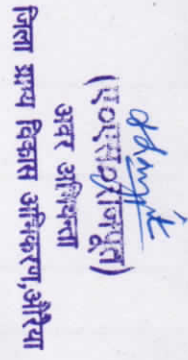 (ए०एस०राजपूत)
अवर अभियन्ता
जिला ग्राम्य विकास अभिकरण,औरैया